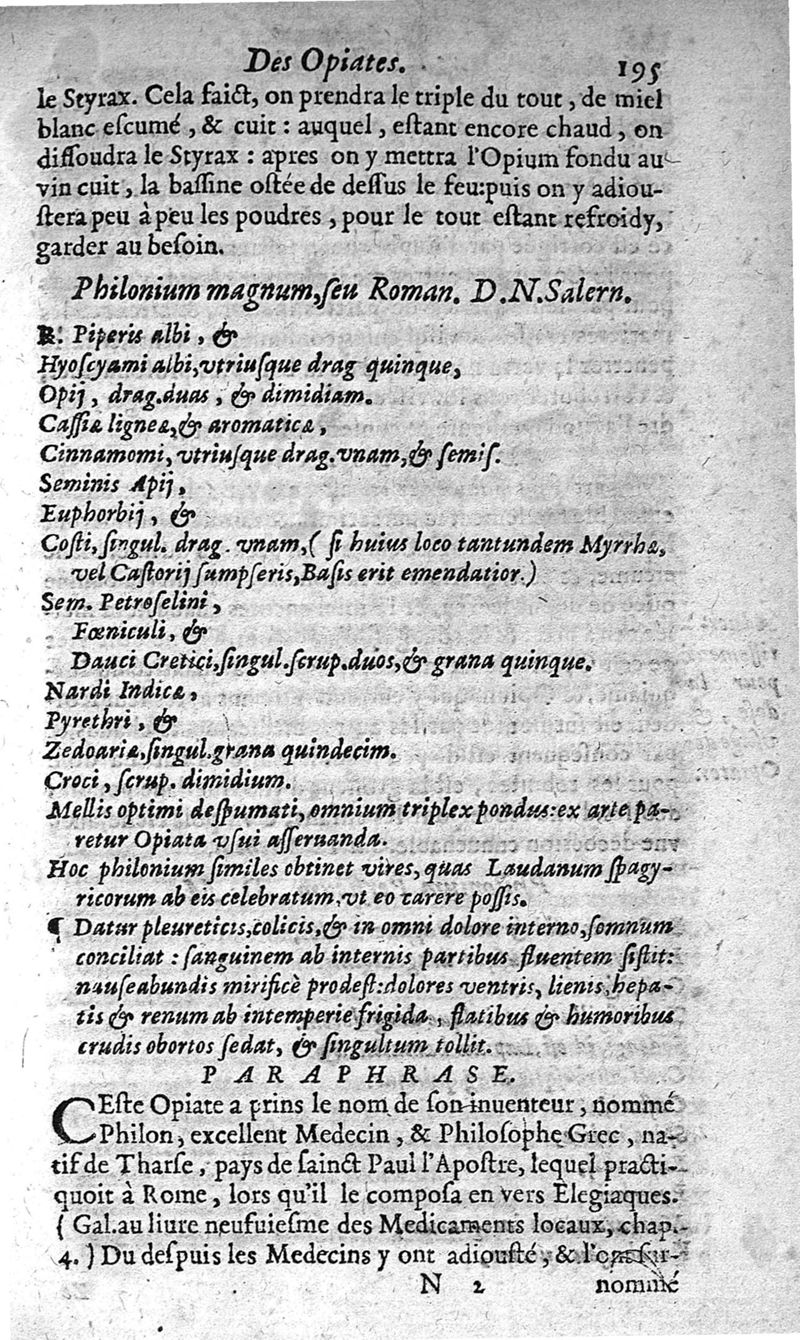 Des Opiates. 195
le Styrax. Cela faict, on prendra le triple du tout, de miel
blanc eſcumé, & cuit : auquel, eſtant encore chaud, on
diſſoudra le Styrax : apres on y mettra l'Opium fondu au
vin cuit, la baſſine oſtée de deſſus le feu:puis on y adiou-
ſtera peu à peu les poudres, pour le tout eſtant refroidy,
garder au beſoin.
Philonium magnum,ſeu Roman. D.N.Salern.
℞. Piperis albi, &
Hyoſcyami albi,vtriuſque drag quinque,
Opij, drag.duas, & dimidiam.
Caſſiæ ligneæ,& aromaticæ,
Cinnamomi,vtriuſque drag.vnam,& ſemiſ.
Seminis Apij,
Euphorbij, &
Coſti,ſingul. drag. vnam,( ſi huius loco tantundem Myrrhæ,
vel Caſtorij ſumpſeris,Baſis erit emendatior.)
Sem. Petroſelini,
Fœniculi, &
Dauci Cretici,ſingul.ſcrup.duos,& grana quinque.
Nardi Indicæ,
Pyrethri, &
Zedoariæ,ſingul.grana quindecim.
Croci, ſcrup. dimidium.
Mellis optimi deſpumati,omnium triplex pondus:ex arte pa-
retur Opiata vſui aſſeruanda.
Hoc philonium ſimiles obtinet vires,quas Laudanum ſpagy-
ricorum ab eis celebratum,vt eo carere poſſis.
¶ Datur pleureticis,colicis,& in omni dolore interno,ſomnum
conciliat : ſanguinem ab internis partibus fluentem ſiſtit:
nauſeabundis mirificè prodeſt:dolores ventris, lienis,hepa-
tis & renum ab intemperie frigida, flatibus & humoribus
crudis obortos ſedat, & ſingultum tollit.
PARAPHRASE.
CEſte Opiate a prins le nom de ſon inuenteur, nommé
Philon, excellent Medecin, & Philoſophe Grec, na-
tif de Tharſe, pays de ſainct Paul l'Apoſtre, lequel practi-
quoit à Rome, lors qu'il le compoſa en vers Elegiaques.
( Gal.au liure neufuieſme des Medicaments locaux, chap.
4. ) Du deſpuis les Medecins y ont adiouſté, &
N 2 nommé